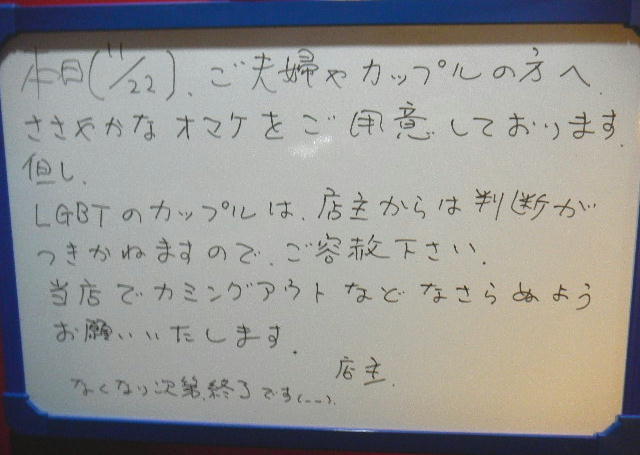 本日(11/22)、ご夫婦やカップルの方へ
ささやかなオマケをご用意しております。
但し、
LGBTのカップルは、店主からは判断が
つきかねますので、ご容赦下さい。
当店でカミングアウトなどなさらぬよう
お願いいたします。
店主.
なくなり次第、終了です(__).